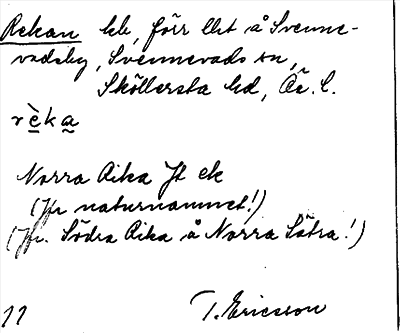 Rekan lh, förr lht å Svenne-
vadsby, Svennevads sn,
Sköllersta hd, Ör. l.
rèka
Norra Aika Jt ek
(Jfr naturnamnet!)
(Jfr. Södra Aika å Norra Sätra!)
77 T. Ericsson